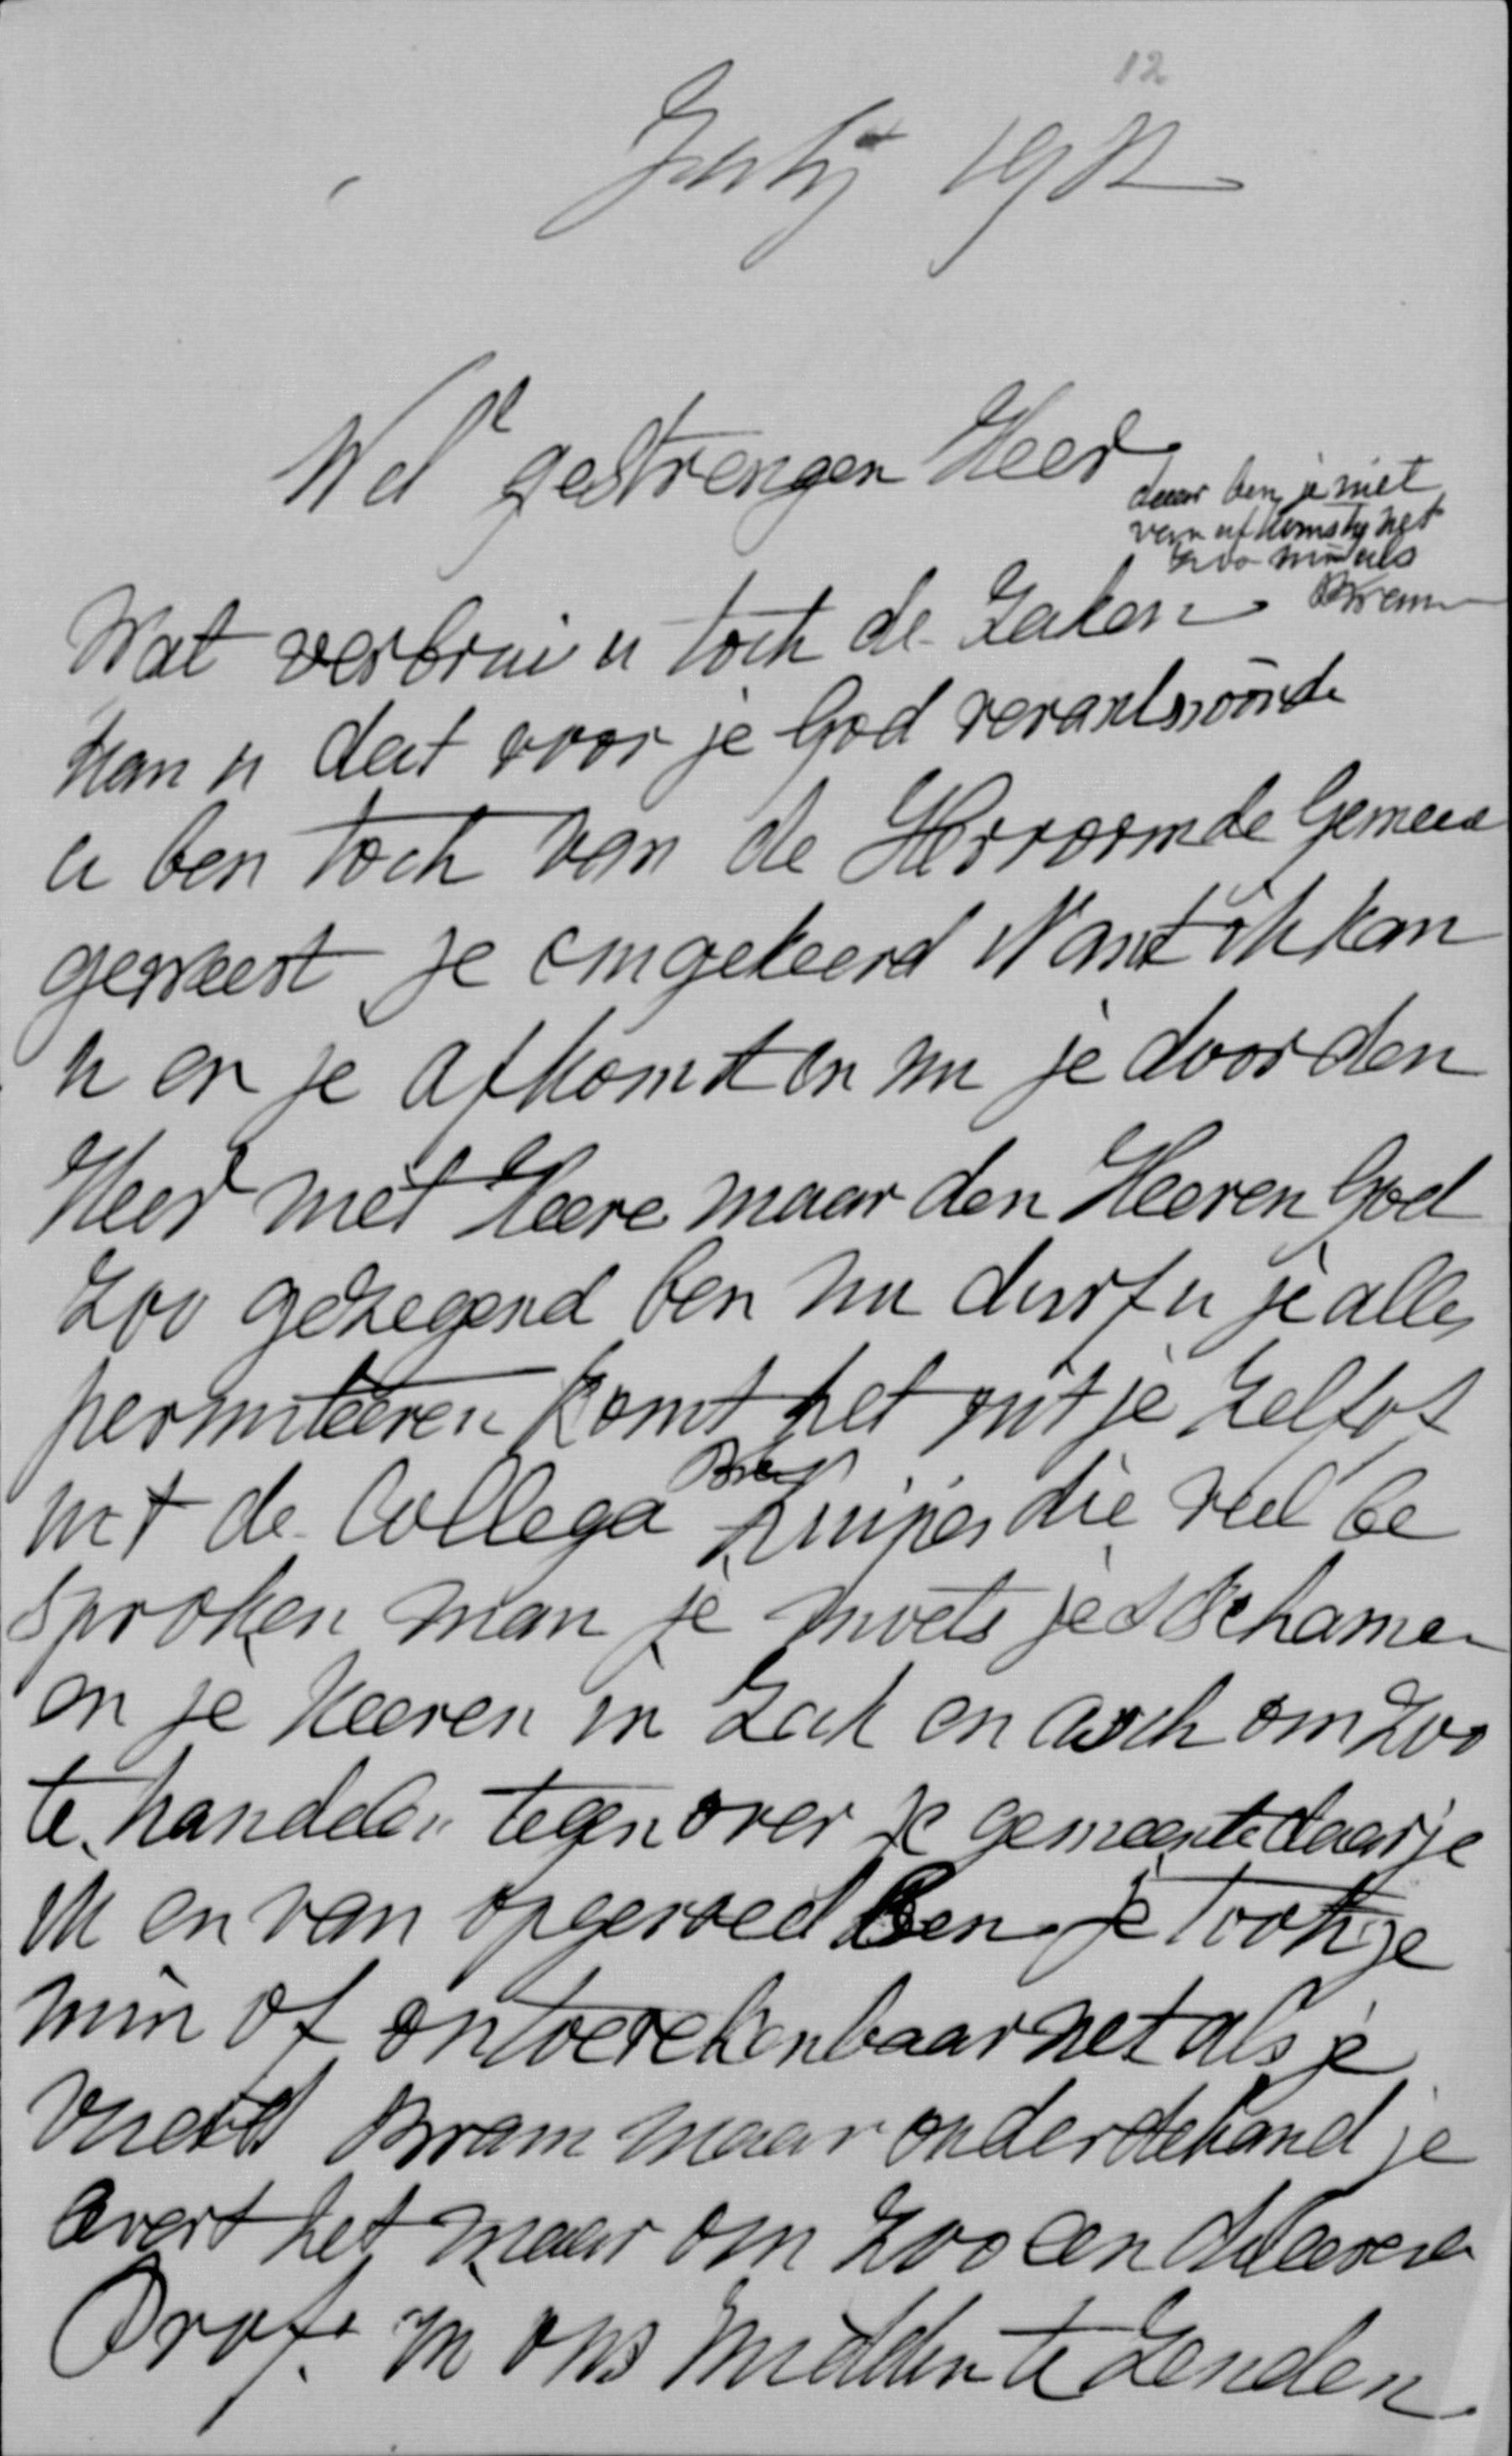 12
July 1912
Wel gestrengen Heer
daar ben je niet
van afkomstig net
zoo min als
Bram
Wat verbrui u toch de Zaken
kan u dat voor je God verantwoorde
u ben toch van de Hervormde Gemeen
geweest je omgekeerd Want ik kan
u en je afkomst en nu je door den
Heer met Heere maar den Heeren God
Zoo gezegend ben nu durf u je alles
permiteeren komt het uit je Zelfof
met de Collega Kuiper die veel be
sproken man je moets je Schamen
en je keeren in Zak en asch om Zoo
te handelen tegenover je gemeente daar je
in en van opgevoed Ben je toch je
min of ontoerekenbaar net als je
vriend Bram maar onderdehand je
avert het maar om Zoo een
Prof. in ons midden te Zenden